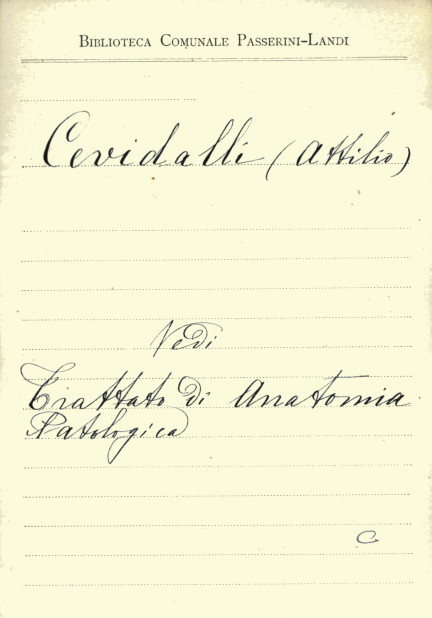 Biblioteca Comunale Passerini-Landi
Cevidalli (Attilio)
Vedi
Trattato di Anatomia
Patologica
C